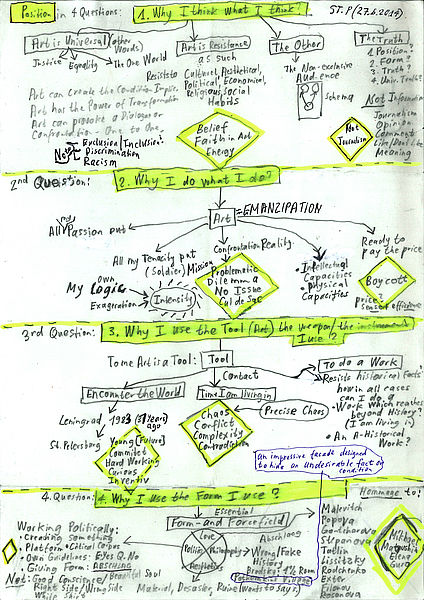 Position in 4 Questions: 1. Why I think What I think? ST.P (27.6.2014)
Art is Universal (other Words)
Justice Equality The One World
Art can Create the Condition
Art has the Power of Transformation
Art can provoke a Dialogue or
Confrontation - One to One
Not: Exclusion/Inclusion
Discrimination
Racism
Art is Resistance
as such
Resists to Cultural, Aesthetical,
Political, Economical,
Religious, Social
Habits
Belief
Faith in Art
Energy
The Other
The Non-exclusive
Audience
Schema
The Truth
1. Position?
2. Form?
3. Truth?
4. Univ. Truth?
Not Information
Journalism
Opinion
Comments
Like/Dont Like
Meaning
Not
Journalism
2nd Question: 2. Why I do what I do?
Art = EMANZIPATION
All Passion put
All my Tenacity put
(Soldier) Mission
My own Logic
Exageration
Intensity
Confrontation Reality
Problematic
Dilemma
No Issue
Cul de Sac
Intellectual
Capacities
physical
Capacities
Ready to
pay the price
Boycott
price?
3rd Question: 3. Why I use the Tool (Art) the weapon/the instrument
I use?
To me Art is a Tool: Tool
Contact
Encounter the World
Leningrad 1983 (31 Years) ago
St. Petersburg
Young (Future)
Commitet
Hard Working
Curious
Inventiv
Time I am living in
Chaos
Conflict
Complexity
Contradiction
Precise Chaos
To do a Work
Resists historical Facts
how in all cases
can I do a
Work which reaches
beyond History?
(I am living in)
An A-Historical
Work?
An impressive facade designed
to hide an undesirable fact or
condition
4. Question: 4. Why I use the Form I use?
Essential
Form- and Forcefield
Love
Politic
Philosophy
Aesthetic
Working Politically:
Creating something
Platform - Critical Corpus
Own Guidelines: Ex. Q.No
Giving Form: ABSCHLAG
Not: Good Conscience/Beautiful Soul
Right Side/Wrong Side
White Ships
Abschlag
Wrong/Fake
History
Brodskij 1½ Room
Pothemkins Village
Material, Disaster Ruine (Wants to says)
Hommage to:
Malevitch
Popova
Gontcharova
Stepanova
Tatlin
Lissitzky
Rodchenko
Exter
Filonov
Rosanova
Mikhael
Magnitskij
Elena
Guro